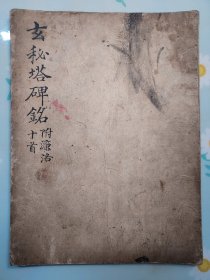 玄秘塔碑銘
附濂洛
十首